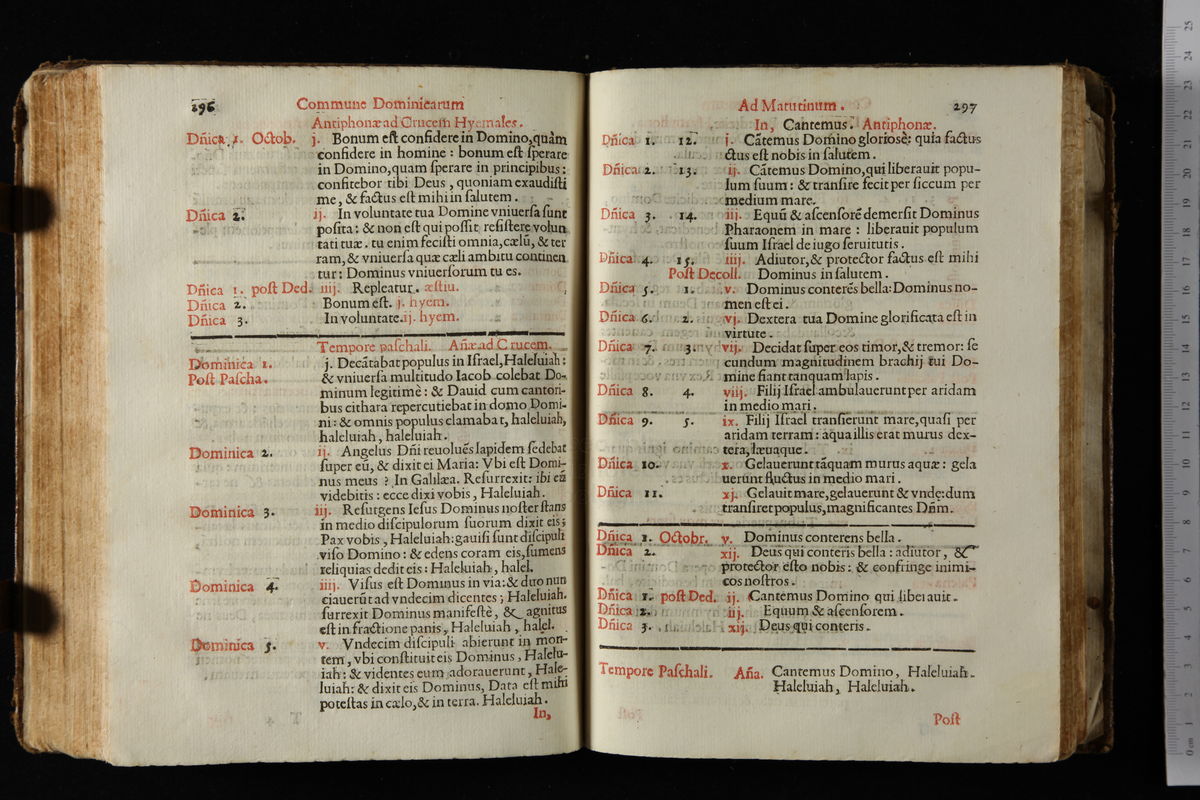 296 Commune Dominicarum
Antiphonæ ad Crucem Hyemales.
Dñica 1. Octob. j. Bonum est confidere in Domino, quàm
confidere in homine : bonum est sperare
in Domino, quam sperare in principibus :
confitebor tibi Deus , quoniam exaudisti
me , & factus est mihi in salutem .
Dñica 2. ij. In voluntate tua Domine vniuersa sunt
posita : & non est qui possit resistere volun
tati tuæ . tu enim fecisti omnia, cælũ, & ter
ram, & vniuersa quæ cæli ambitu continen
tur : Dominus vniuersorum tu es.
Dñica 1. post Ded. iiij. Repleatur. æstiu.
Dñica 2. Bonum est. j. hyem.
Dñica 3. In voluntate. ij. hyem.
Tempore paschali. Añæ ad Crucem.
Dominica 1. j. Decãtabat populus in Israel, Haleluiah :
Post Pascha. & vniuersa multitudo Iacob colebat Do-
minum legitimè : & Dauid cum cantori-
bus cithara repercutiebat in domo Domi-
ni : & omnis populus clamabat, haleluiah,
haleluiah , haleluiah .
Dominica 2. ij. Angelus Dñi reuoluẽs lapidem sedebat
super eũ, & dixit ei Maria : Vbi est Domi-
nus meus ? In Galilæa. Resurrexit : ibi eũ
videbitis : ecce dixi vobis , Haleluiah .
Dominica 3. iij. Resurgens Iesus Dominus noster stans
in medio discipulorum suorum dixit eis ;
Pax vobis , Haleluiah : gauisi sunt discipuli
viso Domino : & edens coram eis, sumens
reliquias dedit eis : Haleluiah , halel.
Dominica 4. iiij. Visus est Dominus in via : & duo nun
ciauerũt ad vndecim dicentes ; Haleluiah.
surrexit Dominus manifestè , & agnitus
est in fractione panis , Haleluiah , halel.
Dominica 5. v. Vndecim discipuli abierunt in mon-
tem , vbi constituit eis Dominus , Halelu-
iah : & videntes eum adorauerunt , Hale-
luiah : & dixit eis Dominus, Data est mihi
potestas in cælo, & in terra. Haleluiah .
In,
Ad Matutinum . 297
In, Cantemus . Antiphonæ.
Dñica 1. 12. j. Cãtemus Domino gloriosè : quia factus
ctus est nobis in salutem .
Dñica 2. 13. ij. Cãtemus Domino, qui liberauit popu-
lum suum : & transire fecit per siccum per
medium mare.
Dñica 3. 14. iij. Equũ & ascensorẽ demersit Dominus
Pharaonem in mare : liberauit populum
suum Israel de iugo seruitutis .
Dñica 4. 15. iiij. Adiutor, & protector factus est mihi
Post Decoll. Dominus in salutem .
Dñica 5. 1. v. Dominus conterẽs bella : Dominus no-
men est ei .
Dñica 6. 2. vj. Dextera tua Domine glorificata est in
virtute .
Dñica 7. 3. vij. Decidat super eos timor, & tremor : se
cundum magnitudinem brachij tui Do-
mine fiant tanquam lapis .
Dñica 8. 4. viij. Filij Israel ambulauerunt per aridam
in medio mari .
Dñica 9. 5. ix. Filij Israel transierunt mare, quasi per
aridam terram : aqua illis erat murus dex-
tera, læuaque .
Dñica 10. x. Gelauerunt tãquam murus aquæ : gela
uerunt fluctus in medio mari .
Dñica 11. xj. Gelauit mare, gelauerunt & vndę : dum
transiret populus, magnificantes Dñm.
Dñica 1. Octobr. v. Dominus conterens bella .
Dñica 2. xij. Deus qui conteris bella : adiutor , &
protector esto nobis : & confringe inimi-
cos nostros .
Dñica 1. post Ded. ij. Cantemus Domino qui liberauit.
Dñica 2. iij. Equum & ascensorem .
Dñica 3. xij. Deus qui conteris .
Tempore Paschali. Aña. Cantemus Domino , Haleluiah.
Haleluiah , Haleluiah .
Post